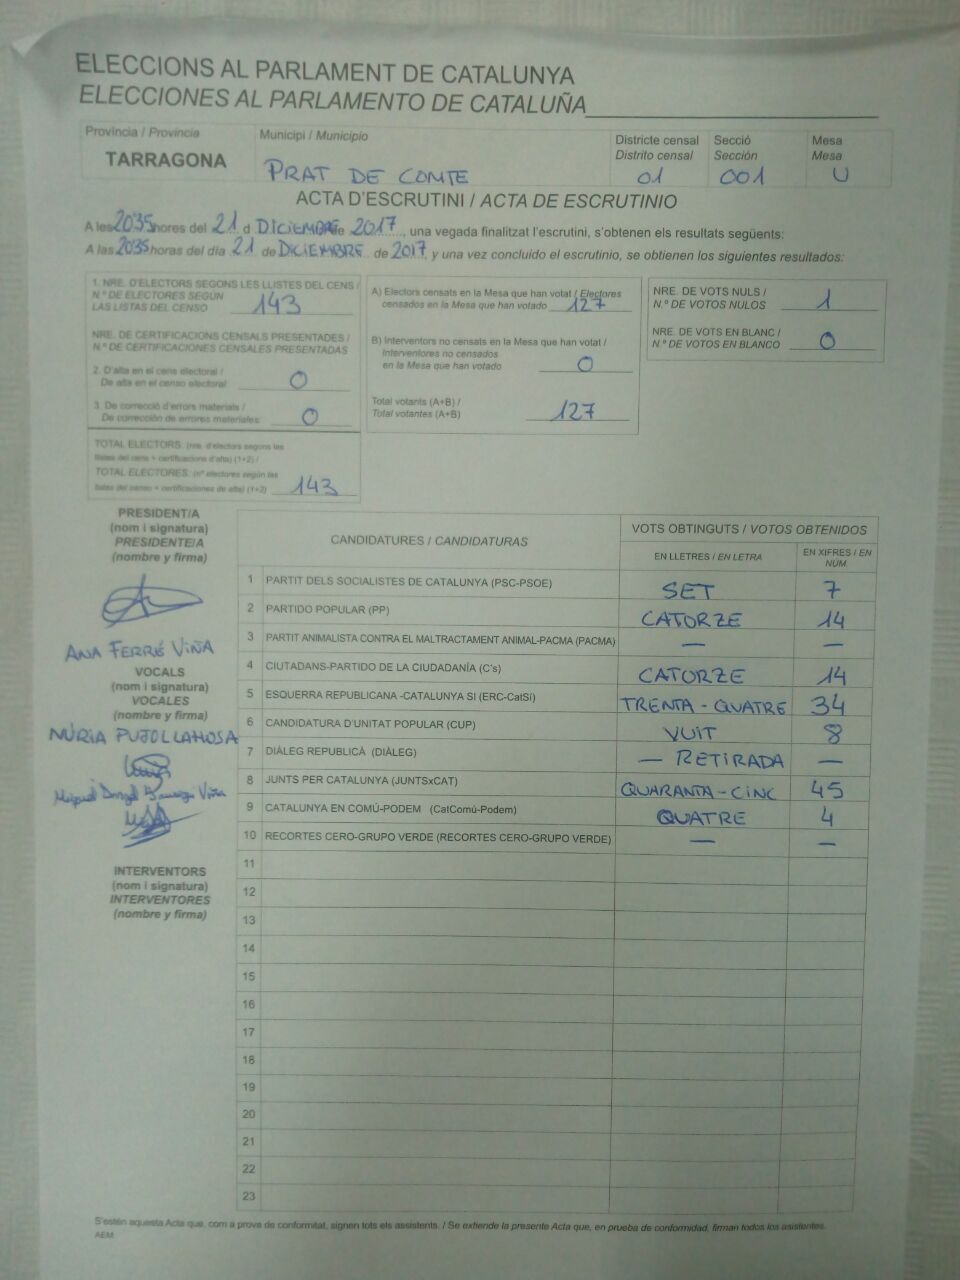 ELECCIONS AL PARLAMENT DE CATALUNYA
ELECCIONES AL PARLAMENTO DE CATALUÑA
Província / Provincia
TARRAGONA
Municipi / Municipio
PRAT DE COMTE
Districte censal
Distrito censal
01
Secció
Sección
001
Mesa
Mesa
U
ACTA D'ESCRUTINI / ACTA DE ESCRUTINIO
A les 2035 hores del 21 d DICIEMBRE de 2017, una vegada finalitzat l'escrutini, s'obtenen els resultats següents:
A las 2035 horas del día 21 de DICIEMBRE de 2017, y una vez concluido el escrutinio, se obtienen los siguientes resultados:
1. NRE. D'ELECTORS SEGONS LES LLISTES DEL CENS /
N.º DE ELECTORES SEGÚN
LAS LISTAS DEL CENSO 143
NRE. DE CERTIFICACIONS CENSALS PRESENTADES /
N.º DE CERTIFICACIONES CENSALES PRESENTADAS
2. D'alta en el cens electoral /
De alta en el censo electoral 0
3. De correcció d'errors materials /
De corrección de errores materiales: 0
TOTAL ELECTORS: (nre. d'electors segons les
llistes del cens + certificacions d'alta) (1+2) /
TOTAL ELECTORES: (nº electores según las
listas del censo + certificaciones de alta) (1+2) 143
A) Electors censats en la Mesa que han votat / Electores
censados en la Mesa que han votado 127
B) Interventors no censats en la Mesa que han votat /
Interventores no censados
en la Mesa que han votado 0
Total votants (A+B) /
Total votantes (A+B) 127
NRE. DE VOTS NULS /
N.º DE VOTOS NULOS 1
NRE. DE VOTS EN BLANC /
N.º DE VOTOS EN BLANCO 0
PRESIDENT/A
(nom i signatura)
PRESIDENTE/A
(nombre y firma)
ANA FERRÉ VIÑA
VOCALS
(nom i signatura)
VOCALES
(nombre y firma)
NÚRIA PUJOL LAHOSA
INTERVENTORS
(nom i signatura)
INTERVENTORES
(nombre y firma)
CANDIDATURES / CANDIDATURAS
VOTS OBTINGUTS / VOTOS OBTENIDOS
EN LLETRES / EN LETRA
EN XIFRES / EN NÚM.
1 PARTIT DELS SOCIALISTES DE CATALUNYA (PSC-PSOE) SET 7
2 PARTIDO POPULAR (PP) CATORZE 14
3 PARTIT ANIMALISTA CONTRA EL MALTRACTAMENT ANIMAL-PACMA (PACMA) — —
4 CIUTADANS-PARTIDO DE LA CIUDADANÍA (C's) CATORZE 14
5 ESQUERRA REPUBLICANA -CATALUNYA SI (ERC-CatSí) TRENTA-QUATRE 34
6 CANDIDATURA D'UNITAT POPULAR (CUP) VUIT 8
7 DIÀLEG REPUBLICÀ (DIÀLEG) — RETIRADA —
8 JUNTS PER CATALUNYA (JUNTSxCAT) QUARANTA-CINC 45
9 CATALUNYA EN COMÚ-PODEM (CatComú-Podem) QUATRE 4
10 RECORTES CERO-GRUPO VERDE (RECORTES CERO-GRUPO VERDE) — —
11
12
13
14
15
16
17
18
19
20
21
22
23
S'estén aquesta Acta que, com a prova de conformitat, signen tots els assistents. / Se extiende la presente Acta que, en prueba de conformidad, firman todos los asistentes.
AEM